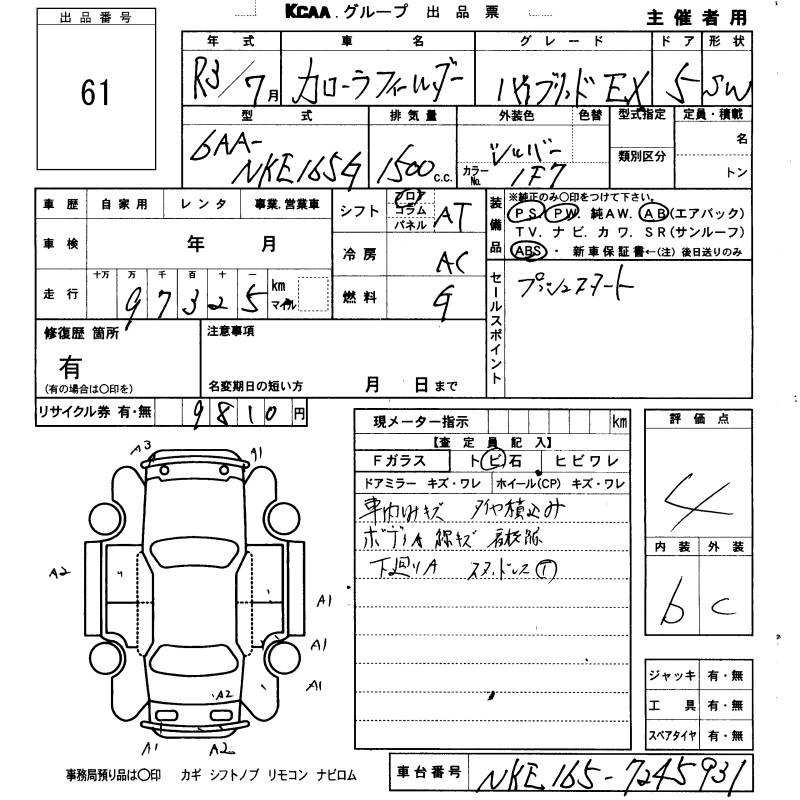 KCAA.グループ 出品票 主催者用
出品番号
61
年式 車名 グレード ドア 形状
R3/7月 カローラフィールダー ハイブリッド EX 5 SW
型式 排気量 外装色 色替 型式指定 定員・積載
6AA-NKE165G 1500 C.C. シルバー カラーNo. 1F7 類別区分 名 トン
車歴 自家用 レンタ 事業.営業車
車検 年 月
走行 十万 万 千 百 十 一 km マイル
97325
シフト フロア コラム パネル AT
冷房 AC
燃料 G
装備品 ※純正のみ〇印をつけて下さい。
PS. PW. 純AW. AB(エアバック)
TV. ナビ. カワ. SR(サンルーフ)
ABS・新車保証書←(注)後日送りのみ
セールスポイント プッシュスタート
修復歴 箇所 注意事項
有
(有の場合は〇印を) 名変期日の短い方 月 日まで
リサイクル券 有・無 9810円
現メーター指示 km
【査定員記入】
Fガラス トビ石 ヒビワレ
ドアミラー キズ・ワレ ホイール(CP) キズ・ワレ
車内凹キズ タイヤ積込み
ボディA 線キズ 看板跡
下廻りA スタッドレスT
評価点
4
内装 外装
b c
ジャッキ 有・無
工具 有・無
スペアタイヤ 有・無
A3 A1
A2 A1
A1
A1
A2
A1 A2
事務局預り品は〇印 カギ シフトノブ リモコン ナビロム
車台番号 NKE165-7245931